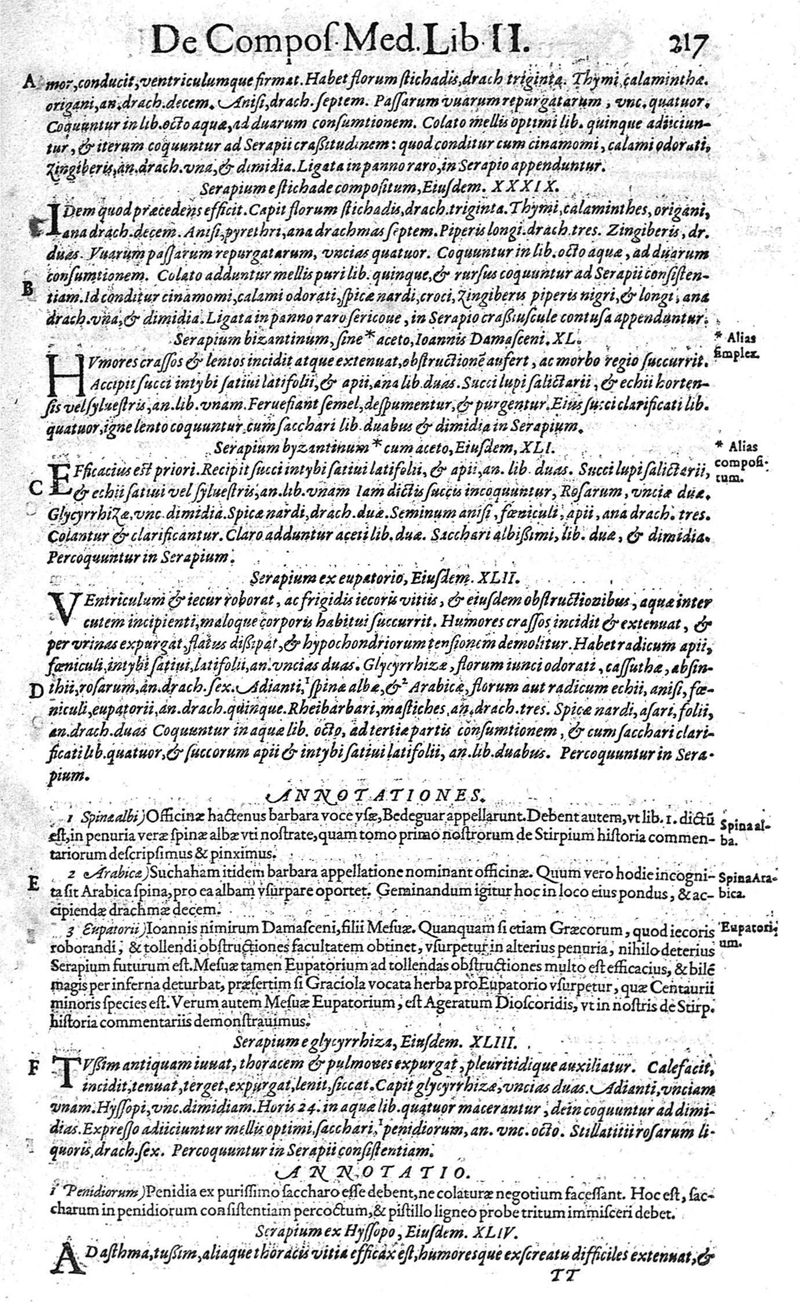 De Compos. Med. Lib. II. 217
A mor, conducit, ventriculumque firmat. Habet florum stichadis, drach triginta. Thymi, calaminthæ.
origani, an, drach. decem. Anisi, drach. septem. Passarum vuarum repurgatarum, vnc. quatuor.
Coquuntur in lib. octo aquæ, ad duarum consumtionem. Colato mellis optimi lib. quinque adiiciun-
tur, & iterum coquuntur ad Serapii crassitudinem: quod conditur cum cinamomi, calami odorati,
Zingiberis, án. drach. vna, & dimidia. Ligata in panno raro, in Serapio appenduntur.
Serapium e stichade compositum, Eiusdem. XXXIX.
IDem quod præcedens efficit. Capit florum stichadis, drach. triginta. Thymi, calaminthes, origani,
ana drach. decem. Anisi, pyrethri, ana drachmas septem. Piperis longi. drach. tres. Zingiberis, dr.
duas. Vuarum passarum repurgatarum, vncias quatuor. Coquuntur in lib. octo aquæ, ad duarum
consumtionem. Colato adduntur mellis puri lib. quinque, & rursus coquuntur ad Serapii consisten-
B tiam. Id conditur cinamomi, calami odorati, spicæ nardi, croci, Zingiberis piperis nigri, & longi, ana
drach. vna, & dimidia. Ligata in panno raro sericoue, in Serapio crassiuscule contusa appenduntur.
Serapium bizantinum, sine * aceto, Ioannis Damasceni. XL.
* Alias
simplex.
HVmores crassos & lentos incidit atque extenuat, obstructionē aufert, ac morbo regio succurrit.
Accipit succi intybi satiui latifolii, & apii, ana lib. duas. Succi lupi salictarii, & echii horten-
sis vel syluestris, an. lib. vnam. Feruefiant semel, despumentur, & purgentur. Eius succi clarificati lib.
quatuor, igne lento coquuntur cum sacchari lib. duabus & dimidia in Serapium.
Serapium byzantinum * cum aceto, Eiusdem, XLI.
* Alias
composi-
tum.
EFficacius est priori. Recipit succi intybi satiui latifolii, & apii, an. lib. duas. Succi lupi salictarii,
C & echii satiui vel syluestris, an. lib. vnam Iam dictis succis incoquuntur, Rosarum, vnciæ duæ.
Glycyrrhizæ, vnc. dimidia. Spicæ nardi, drach. duæ. Seminum anisi, fœniculi, apii, ana drach. tres.
Colantur & clarificantur. Claro adduntur aceti lib. duæ. Sacchari albissimi, lib. duæ, & dimidia.
Percoquuntur in Serapium.
Serapium ex eupatorio, Eiusdem. XLII.
VEntriculum & iecur roborat, ac frigidis iecoris vitiis, & eiusdem obstructionibus, aquæ inter
cutem incipienti, maloque corporis habitui succurrit. Humores crassos incidit & extenuat, &
per vrinas expurgat, flatus dissipat, & hypochondriorum tensionem demolitur. Habet radicum apii,
fœniculi, intybi satiui, latifolii, an. vncias duas. Glycyrrhizæ, florum iunci odorati, cassuthæ, absin-
D thii, rosarum, án. drach. sex. Adianti, ¹spinæ albæ, &² Arabicæ, florum aut radicum echii, anisi, fœ-
niculi, eupatorii, án. drach. quinque. Rheibarbari, mastiches, an. drach. tres. Spicæ nardi, asari, folii,
an. drach. duas Coquuntur in aquæ lib. octo, ad tertiæ partis consumtionem, & cum sacchari clari-
ficati lib. quatuor, & succorum apii & intybi satiui latifolii, an. lib. duabus. Percoquuntur in Sera-
pium.
ANNOTATIONES.
1 Spinæ albi) Officinæ hactenus barbara voce vsæ, Bedeguar appellarunt. Debent autem, vt lib. 1. dictū
est, in penuria veræ spinæ albæ vti nostrate, quam tomo primo nostrorum de Stirpium historia commen-
tariorum descripsimus & pinximus.
Spina al-
ba.
2 Arabicæ) Suchaham itidem barbara appellatione nominant officinæ. Quum vero hodie incogni-
E ta sit Arabica spina, pro ea albam vsurpare oportet. Geminandum igitur hoc in loco eius pondus, & ac-
cipiendæ drachmæ decem.
Spina Ara-
bica.
3 Eupatorii) Ioannis nimirum Damasceni, filii Mesuæ. Quanquam si etiam Græcorum, quod iecoris
roborandi, & tollendi obstructiones facultatem obtinet, vsurpetur in alterius penuria, nihilo deterius
Serapium futurum est. Mesuæ tamen Eupatorium ad tollendas obstructiones multo est efficacius, & bilē
magis per inferna deturbat, præsertim si Graciola vocata herba pro Eupatorio vsurpetur, quæ Centaurii
minoris species est. Verum autem Mesuæ Eupatorium, est Ageratum Dioscoridis, vt in nostris de Stirp.
historia commentariis demonstrauimus.
Eupatori-
um.
Serapium e glycyrrhiza, Eiusdem. XLIII.
F TVssim antiquam iuuat, thoracem & pulmones expurgat, pleuritidique auxiliatur. Calefacit,
incidit, tenuat, terget, expurgat, lenit, siccat. Capit glycyrrhizæ, vncias duas. Adianti, vnciam
vnam. Hyssopi, vnc. dimidiam. Horis 24. in aquæ lib. quatuor macerantur, dein coquuntur ad dimi-
dias. Expresso adiiciuntur mellis optimi, sacchari, ¹penidiorum, an. vnc. octo. Stillatitii rosarum li-
quoris, drach. sex. Percoquuntur in Serapii consistentiam.
ANNOTATIO.
1 Penidiorum) Penidia ex purissimo saccharo esse debent, ne colaturæ negotium facessant. Hoc est, sac-
charum in penidiorum consistentiam percoctum, & pistillo ligneo probe tritum immisceri debet.
Serapium ex Hyssopo, Eiusdem. XLIV.
AD asthma, tussim, aliaque thoracis vitia efficax est, humoresque exscreatu difficiles extenuat, &
TT